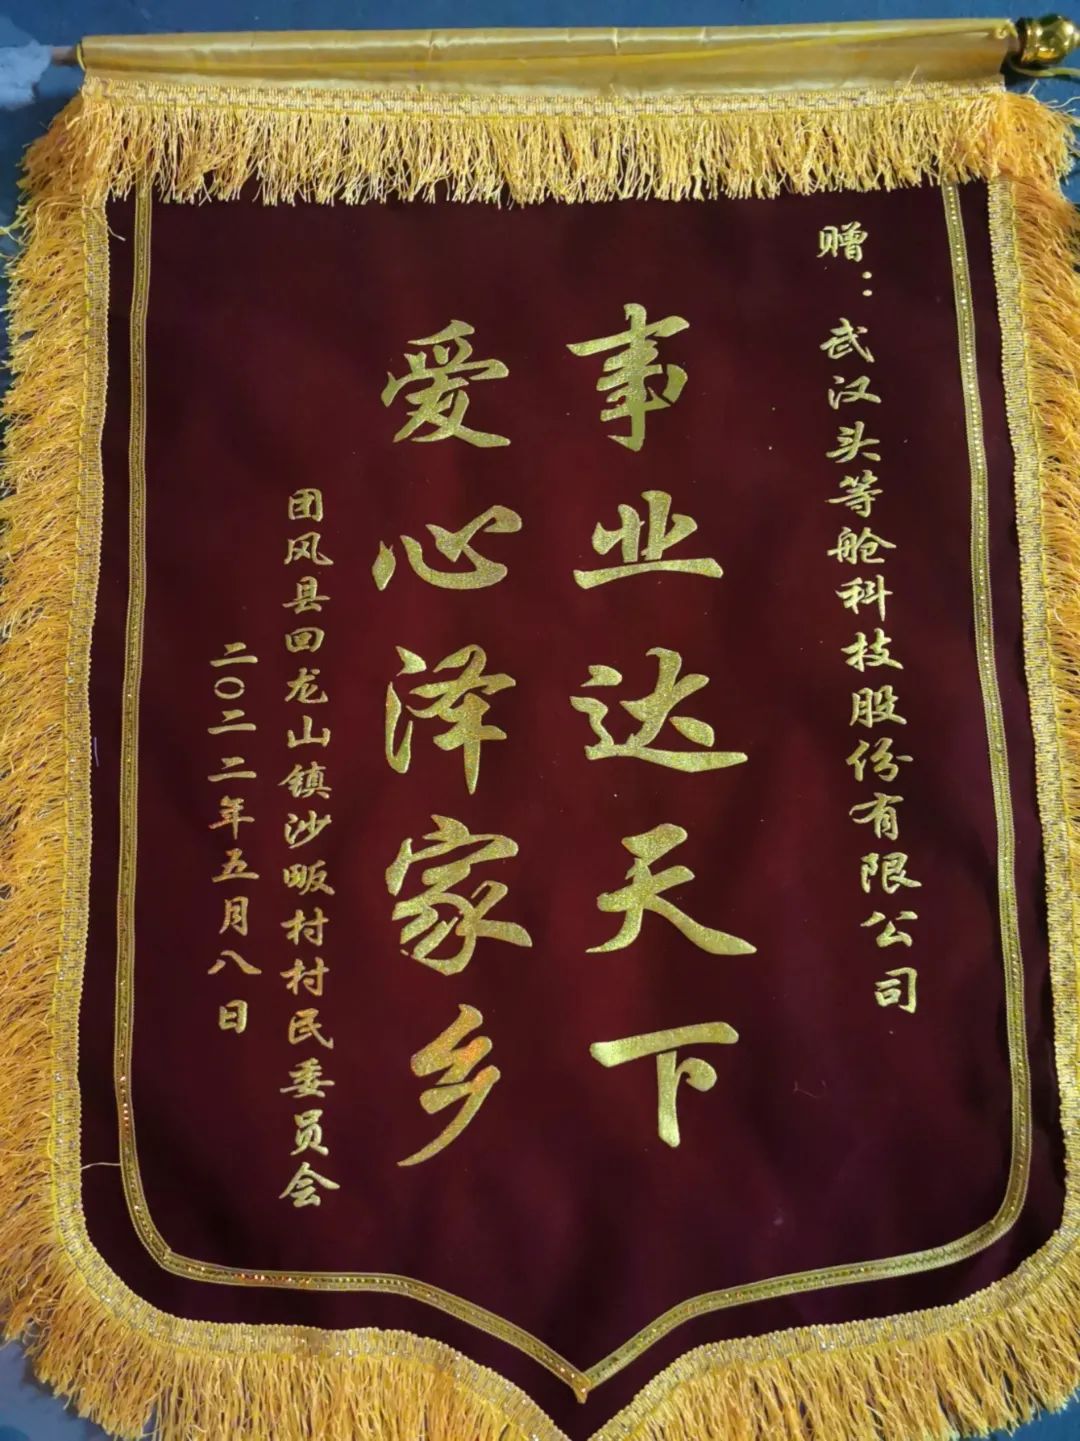 赠：武汉头等舱科技股份有限公司
事业达天下
爱心泽家乡
团风县回龙山镇沙畈村村民委员会
二〇二二年五月八日